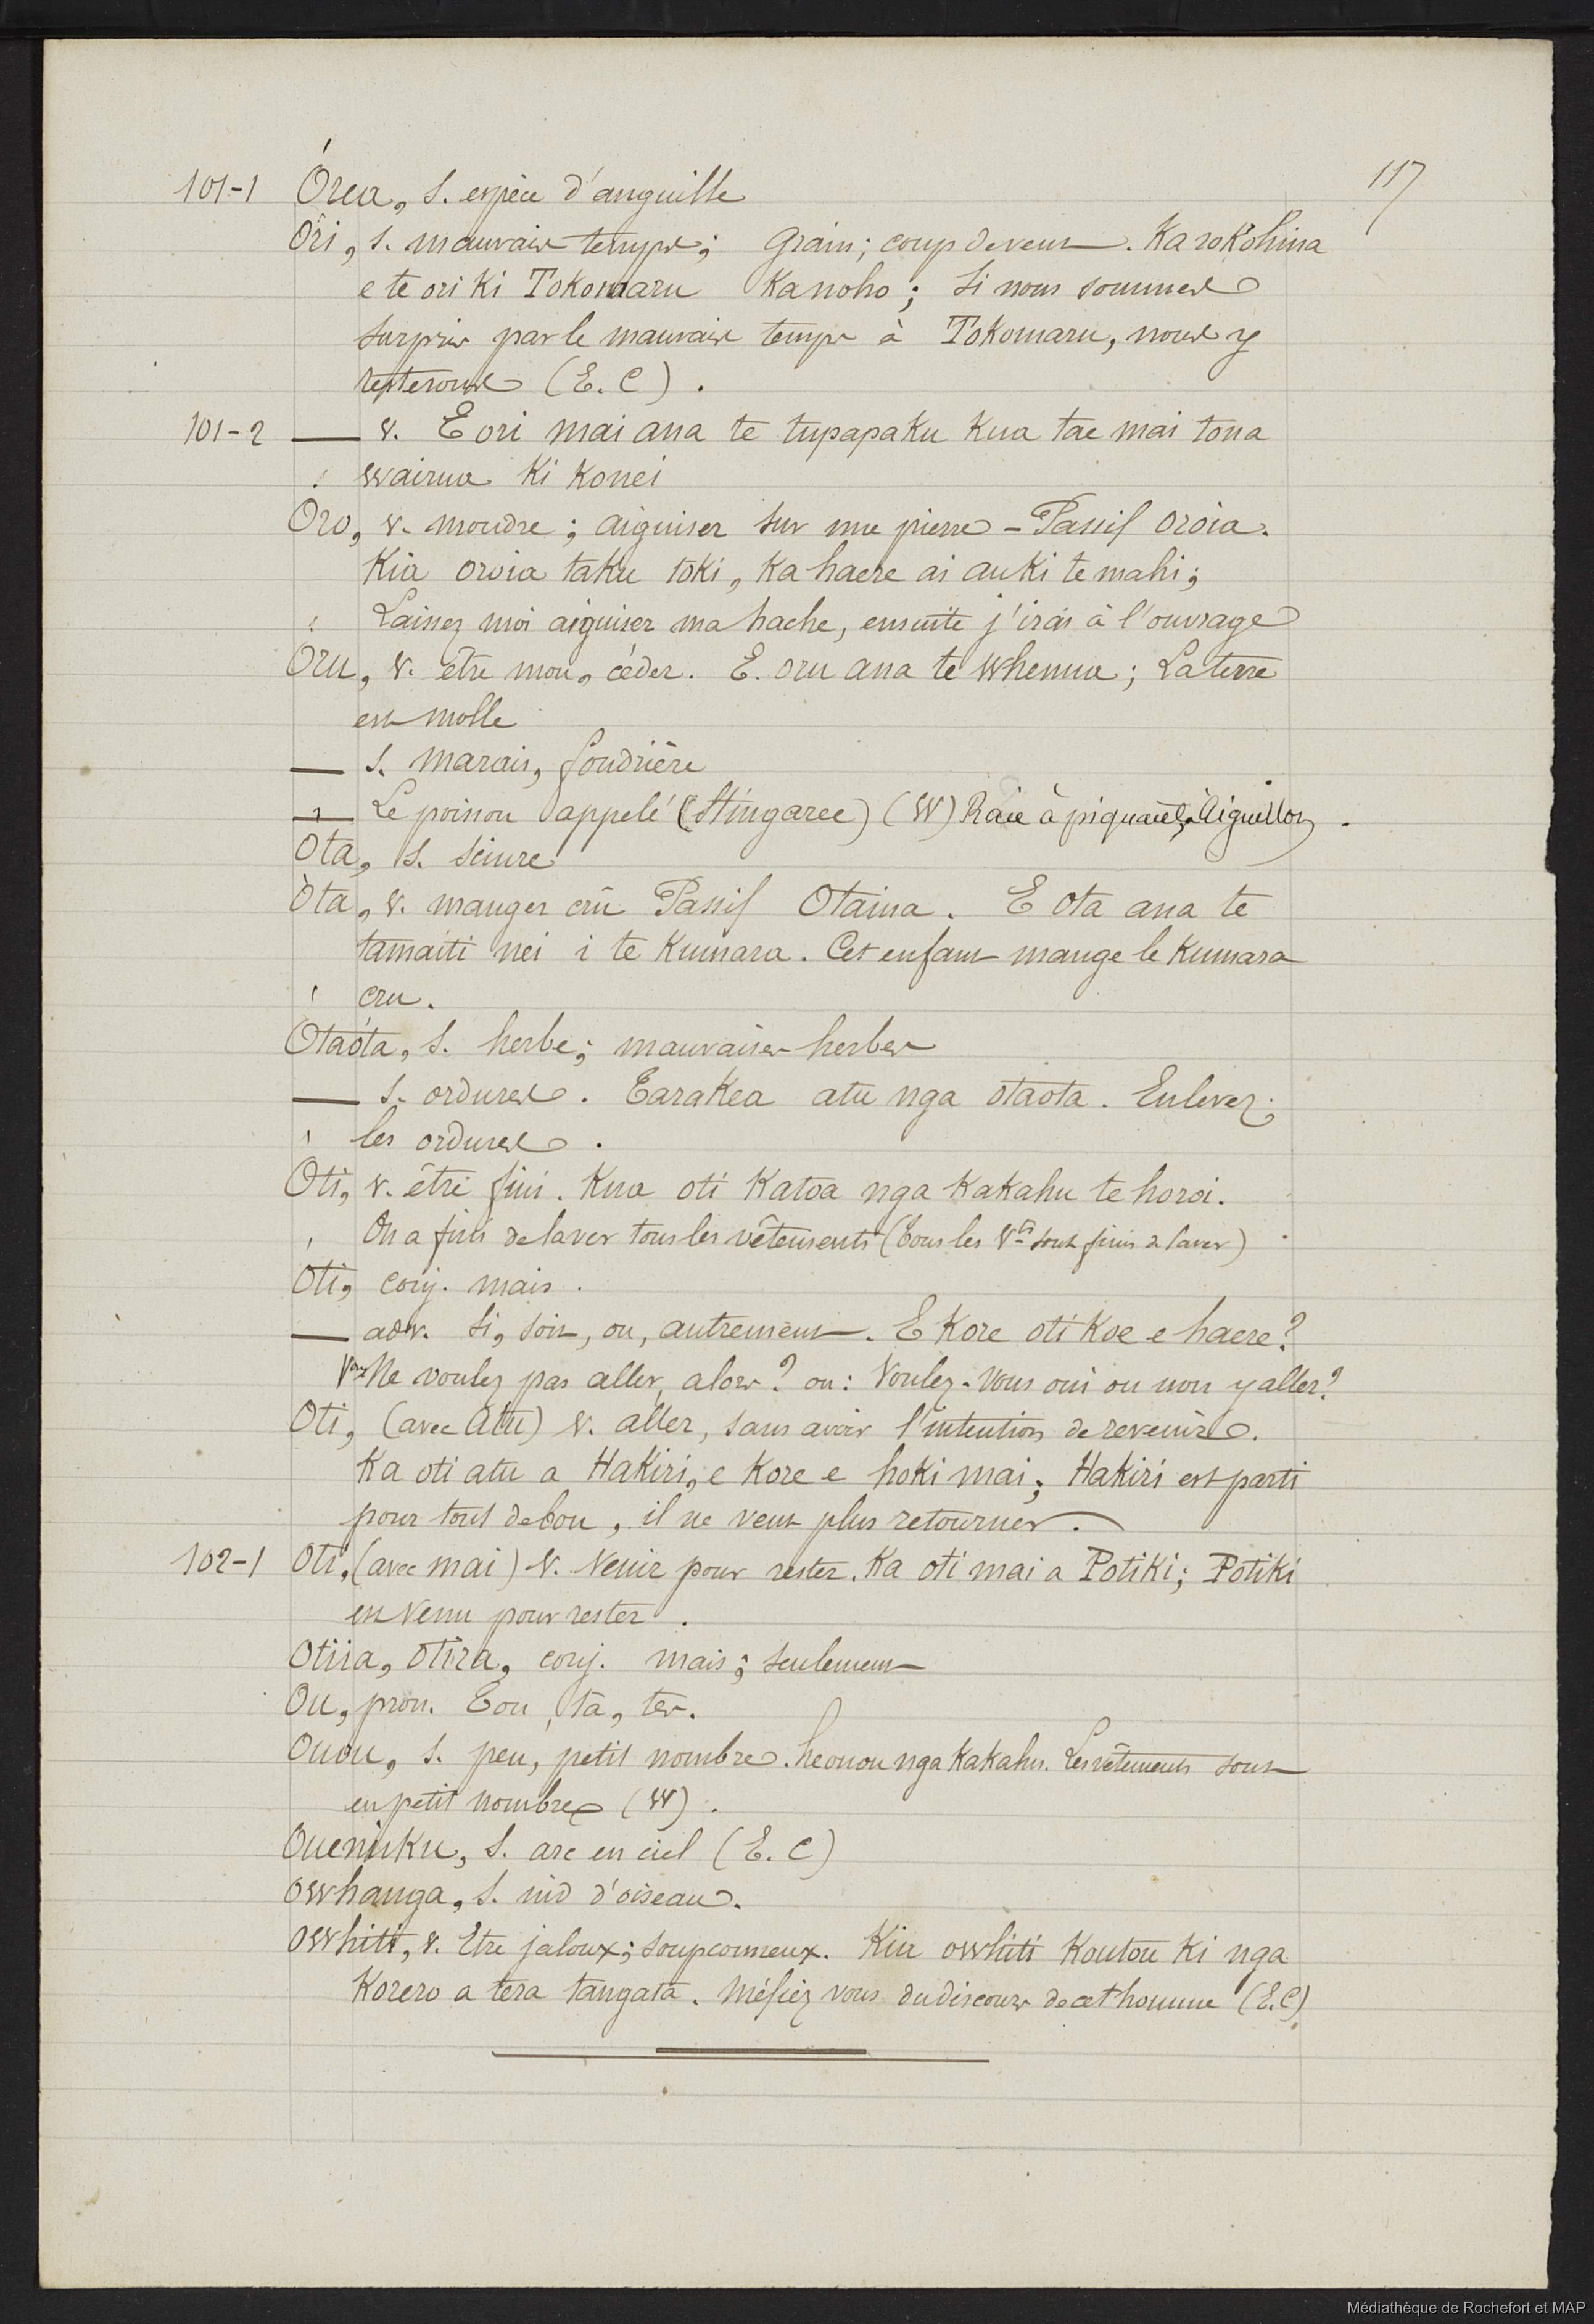 117
101-1 Órea, s. espèce d'anguille
Ori, s. mauvais temps; Grain; coup de vent. Ka rokohina
e te ori ki Tokomaru Ka noho; si nous sommes
surpris par le mauvais temps à Tokomaru, nous y
resterons (E. C).
101-2 — v. E ori mai ana te tupapaku Kua tae mai tona
wairua Ki Konei
Oro, v. moudre; aiguiser sur une pierre - Passif oroia.
Kia oroia taku toki, Ka haere ai au Ki te mahi;
Laissez moi aiguiser ma hache, ensuite j'irai à l'ouvrage
Oru, v. être mou, céder. E. oru ana te whenua; La terre
est molle
— s. marais, fondrière
— Le poisson appelé (Stingaree) (W) Raie à piquants, Aiguillon.
Ota, s. sciure
Òta, v. manger cru Passif Otaina. E ota ana te
tamaiti nei i te Kumara. Cet enfant mange le Kumara
cru.
Otaota, s. herbe; mauvaises herbes
— s. ordures. Tarakea atu nga otaota. Enlevez
les ordures.
Oti, v. être fini. Kua oti Katoa nga Kakahu te horoi.
On a fini de laver tous les vêtements (Tous les Vts sont finis à laver)
Oti, conj. mais.
— adv. Si, soit, ou, autrement. E Kore oti Koe e haere?
Vous Ne voulez pas aller, alors? ou: Voulez-vous oui ou non y aller?
Oti, (avec Atu) v. aller, sans avoir l'intention de revenir.
Ka oti atu a Hakiri, e Kore e hoki mai; Hakiri est parti
pour tout de bon, il ne veut plus retourner.
102-1 Oti, (avec mai) v. venir pour rester. Ka oti mai a Potiki; Potiki
est venu pour rester.
Otiia, otira, conj. mais; seulement
Ou, pron. Ton, ta, tes.
Ouou, s. peu, petit nombre. he ouou nga Kakahu. Les vêtements sont
en petit nombre (W).
Ouenuku, s. arc en ciel (E. C)
Owhanga, s. nid d'oiseau.
Owhiti, v. Etre jaloux; soupconneux. Kia owhiti Koutou Ki nga
Korero a tera tangata. Méfiez vous du discours de cet homme (E.C)
Médiathèque de Rochefort et MAP